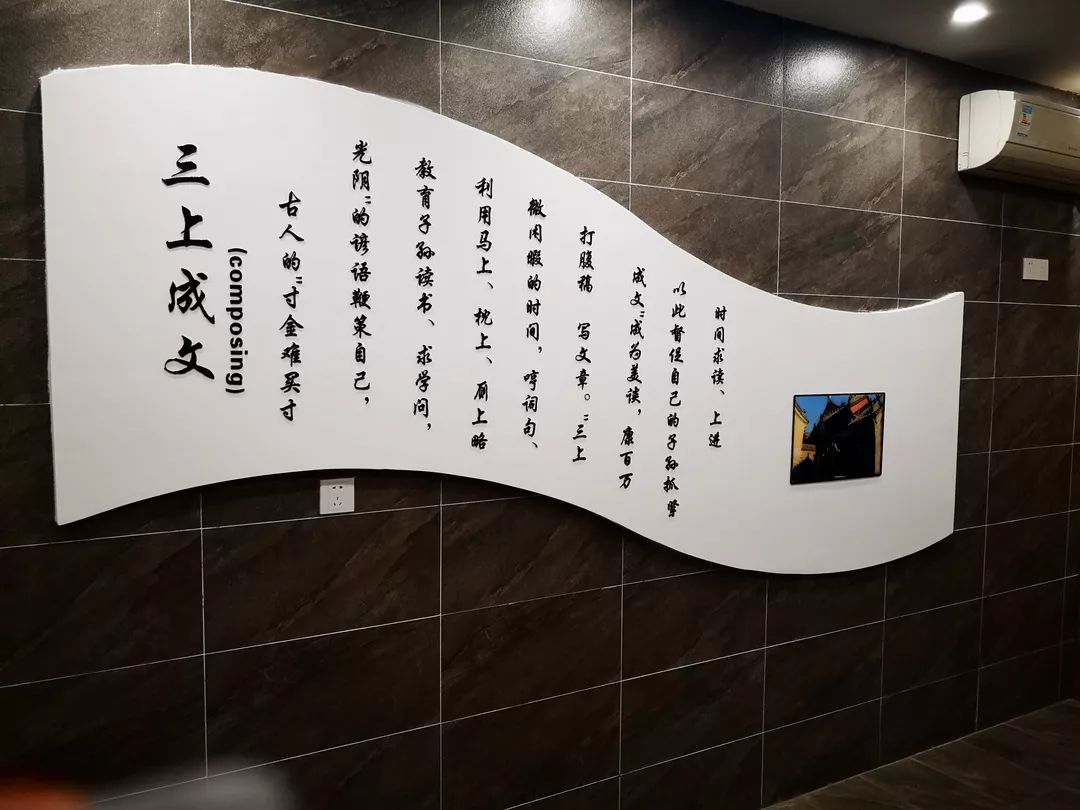 三上成文
(composing)
古人的"寸金难买寸
光阴"的谚语鞭策自己,
教育子孙读书、求学问,
利用马上、枕上、厕上略
微闲暇的时间,哼词句、
打腹稿 写文章。"三上
成文"成为美谈,康百万
以此督促自己的子孙抓紧
时间求读、上进